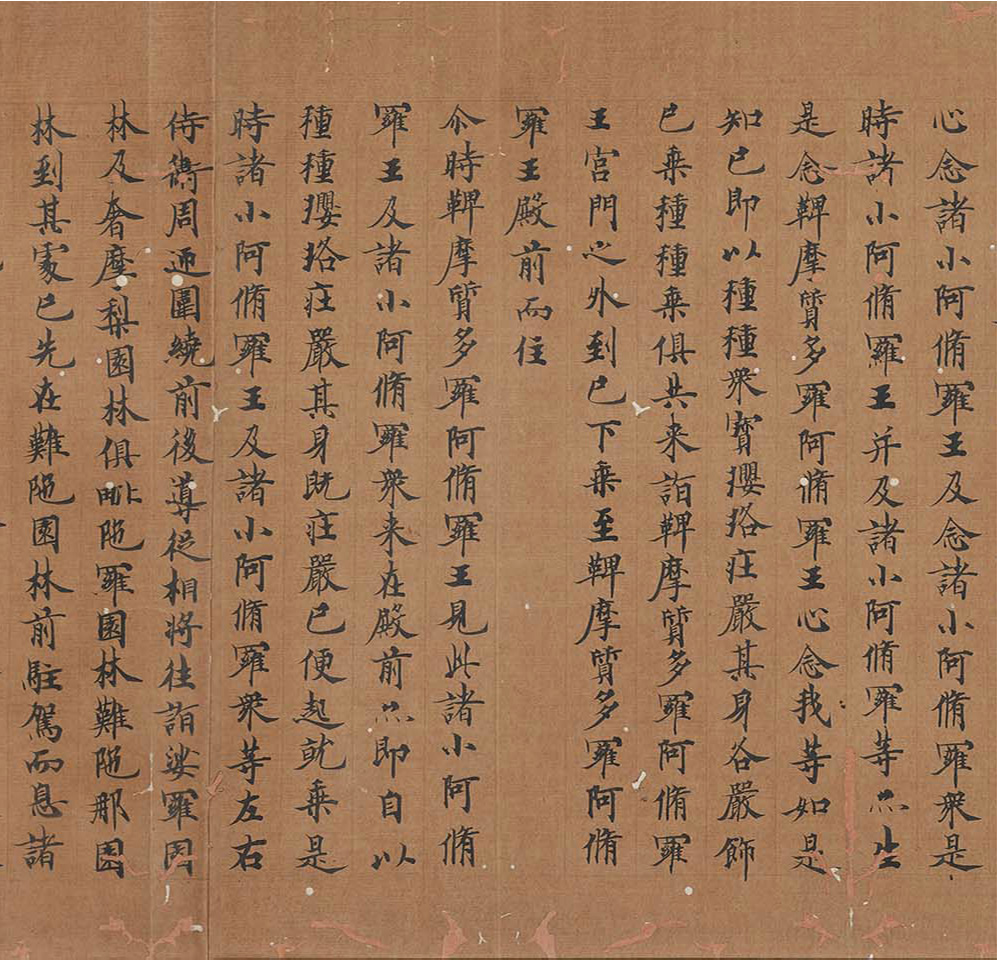 心念諸小阿脩羅王及念諸小阿脩羅衆是
時諸小阿脩羅王并及諸小阿脩羅等亦生
是念鞞摩質多羅阿脩羅王心念我等如是
知已即以種種衆寶瓔珞莊嚴其身各嚴飾
已乗種種乗俱共来詣鞞摩質多羅阿脩羅
王宮門之外到已下乗至鞞摩質多羅阿脩
羅王殿前而住
尒時鞞摩質多羅阿脩羅王見此諸小阿脩
羅王及諸小阿脩羅衆来在殿前亦即自以
種種瓔珞莊嚴其身既莊嚴已便起就乗是
時諸小阿脩羅王及諸小阿脩羅衆等左右
侍衛周迊圍繞前後導從相將往詣娑羅園
林及奢摩梨園林俱毗陁羅園林難陁那園
林到其處已先在難陁園林前駐駕而息諸